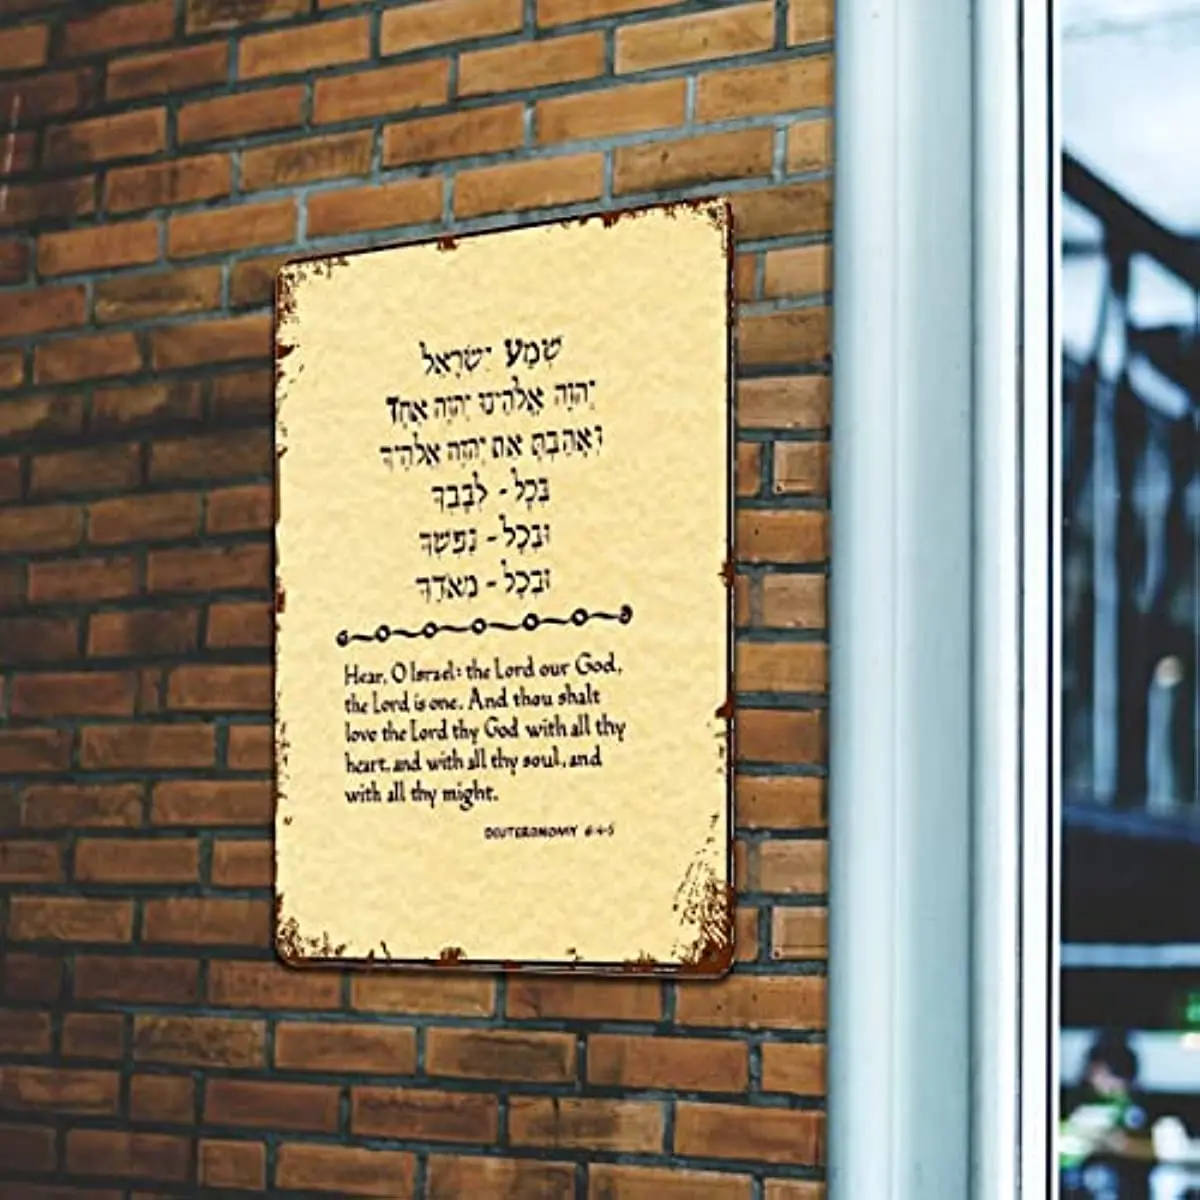 שְׁמַע יִשְׂרָאֵל
יְהוָה אֱלֹהֵינוּ יְהוָה אֶחָד
וְאָהַבְתָּ אֵת יְהוָה אֱלֹהֶיךָ
בְּכָל - לְבָבְךָ
וּבְכָל - נַפְשְׁךָ
וּבְכָל - מְאֹדֶךָ
Hear, O Israel: the Lord our God,
the Lord is one. And thou shalt
love the Lord thy God with all thy
heart, and with all thy soul, and
with all thy might.
DEUTERONOMY 6:4-5